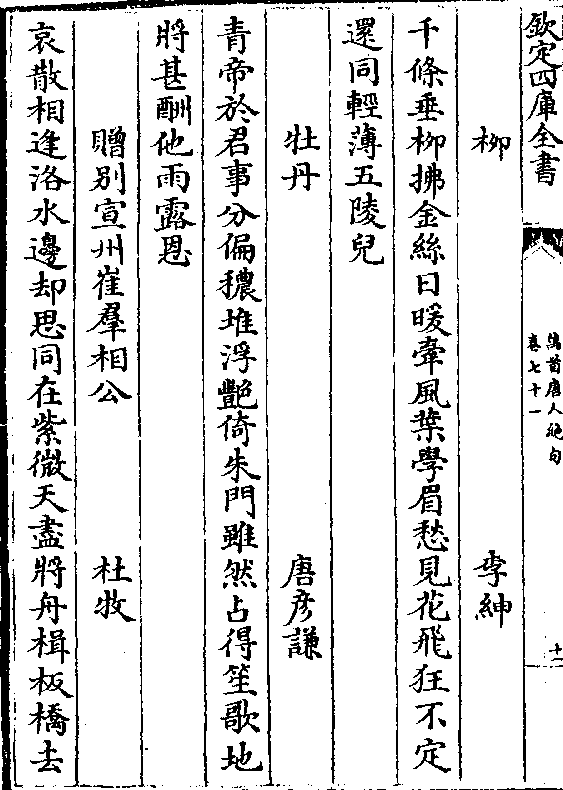 欽定四庫全書
萬首唐人絶句
卷七十一
十一
柳 李紳
千條垂柳拂金絲日暖牽風葉學眉愁見花飛狂不定
還同輕薄五陵兒
牡丹 唐彦謙
青帝於君事分偏穠堆浮艷倚朱門雖然占得笙歌地
將甚酬他雨露恩
贈别宣州崔羣相公 杜牧
哀散相逢洛水邊却思同在紫微天盡將舟楫板橋去